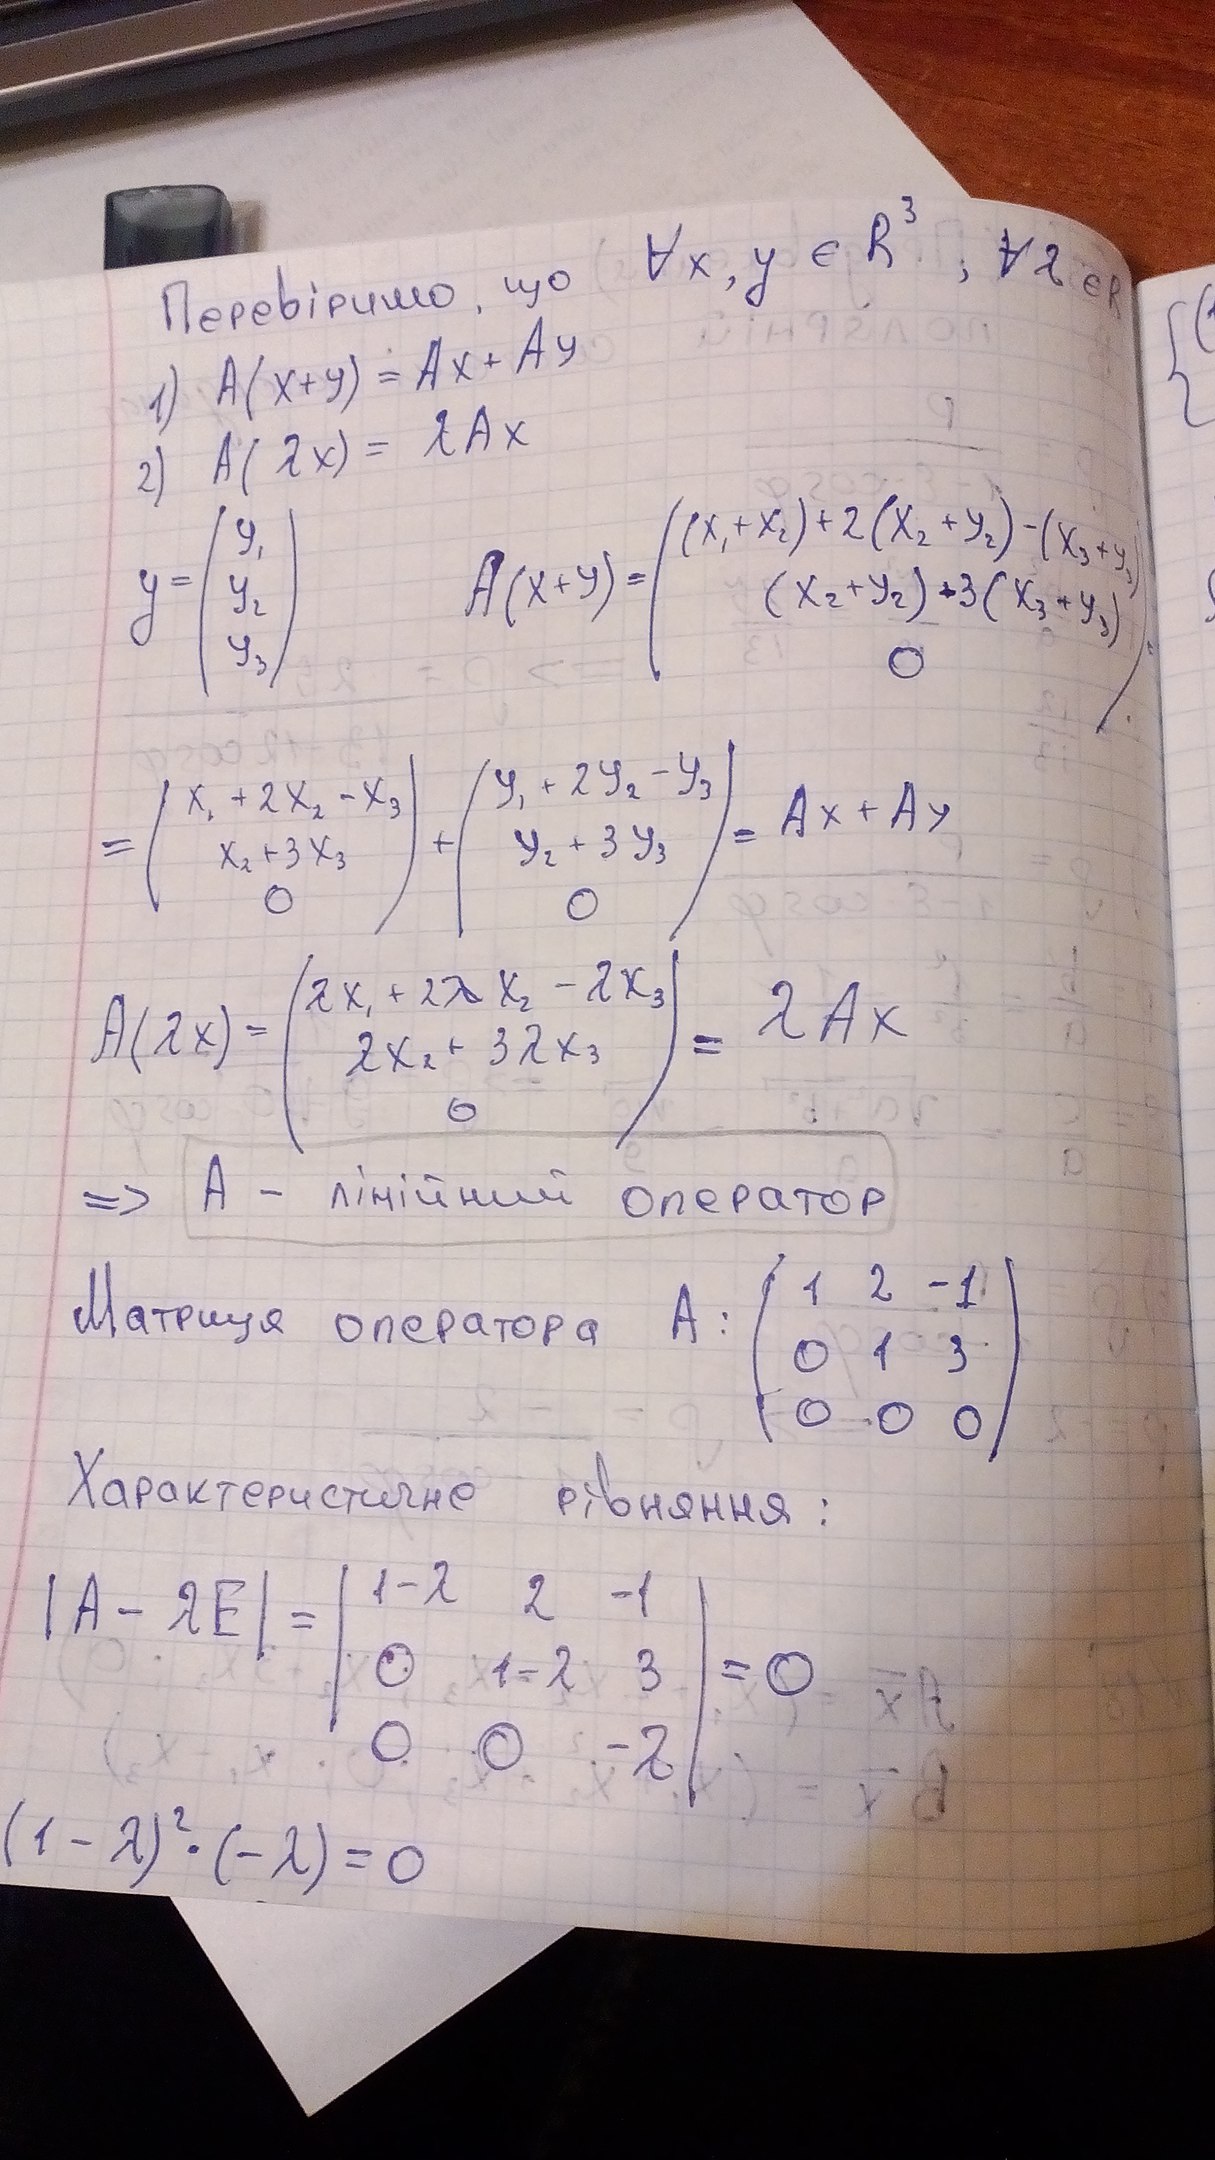 Перевіримо, що ∀x, y ∈ R³, ∀λ ∈ R
1) A(x+y) = Ax + Ay
2) A(λx) = λAx
y = (y₁ y₂ y₃) A(x+y) = ((x₁+x₂)+2(x₂+y₂)-(x₃+y₃)
(x₂+y₂)+3(x₃+y₃)
0) =
= (x₁+2x₂-x₃
x₂+3x₃
0) + (y₁+2y₂-y₃
y₂+3y₃
0) = Ax + Ay
A(λx) = (λx₁+2λx₂-λx₃
λx₂+3λx₃
0) = λAx
=> A - лінійний оператор
Матриця оператора A: (1 2 -1
0 1 3
0 0 0)
Характеристичне рівняння:
|A - λE| = |1-λ 2 -1
0 1-λ 3
0 0 -λ| = 0
(1-λ)²·(-λ) = 0